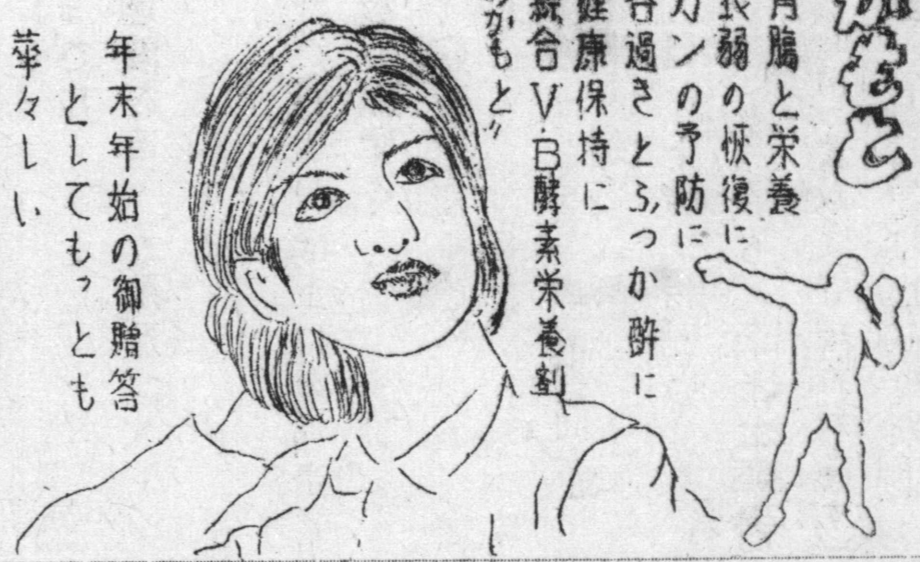 かもと
胃腸と栄養
衰弱の恢復に
ガンの予防に
呑過きとふつか酔に
健康保持に
綜合V.B酵素栄養剤
かもと〃
年末年始の御贈答
としてもっとも
華々しい